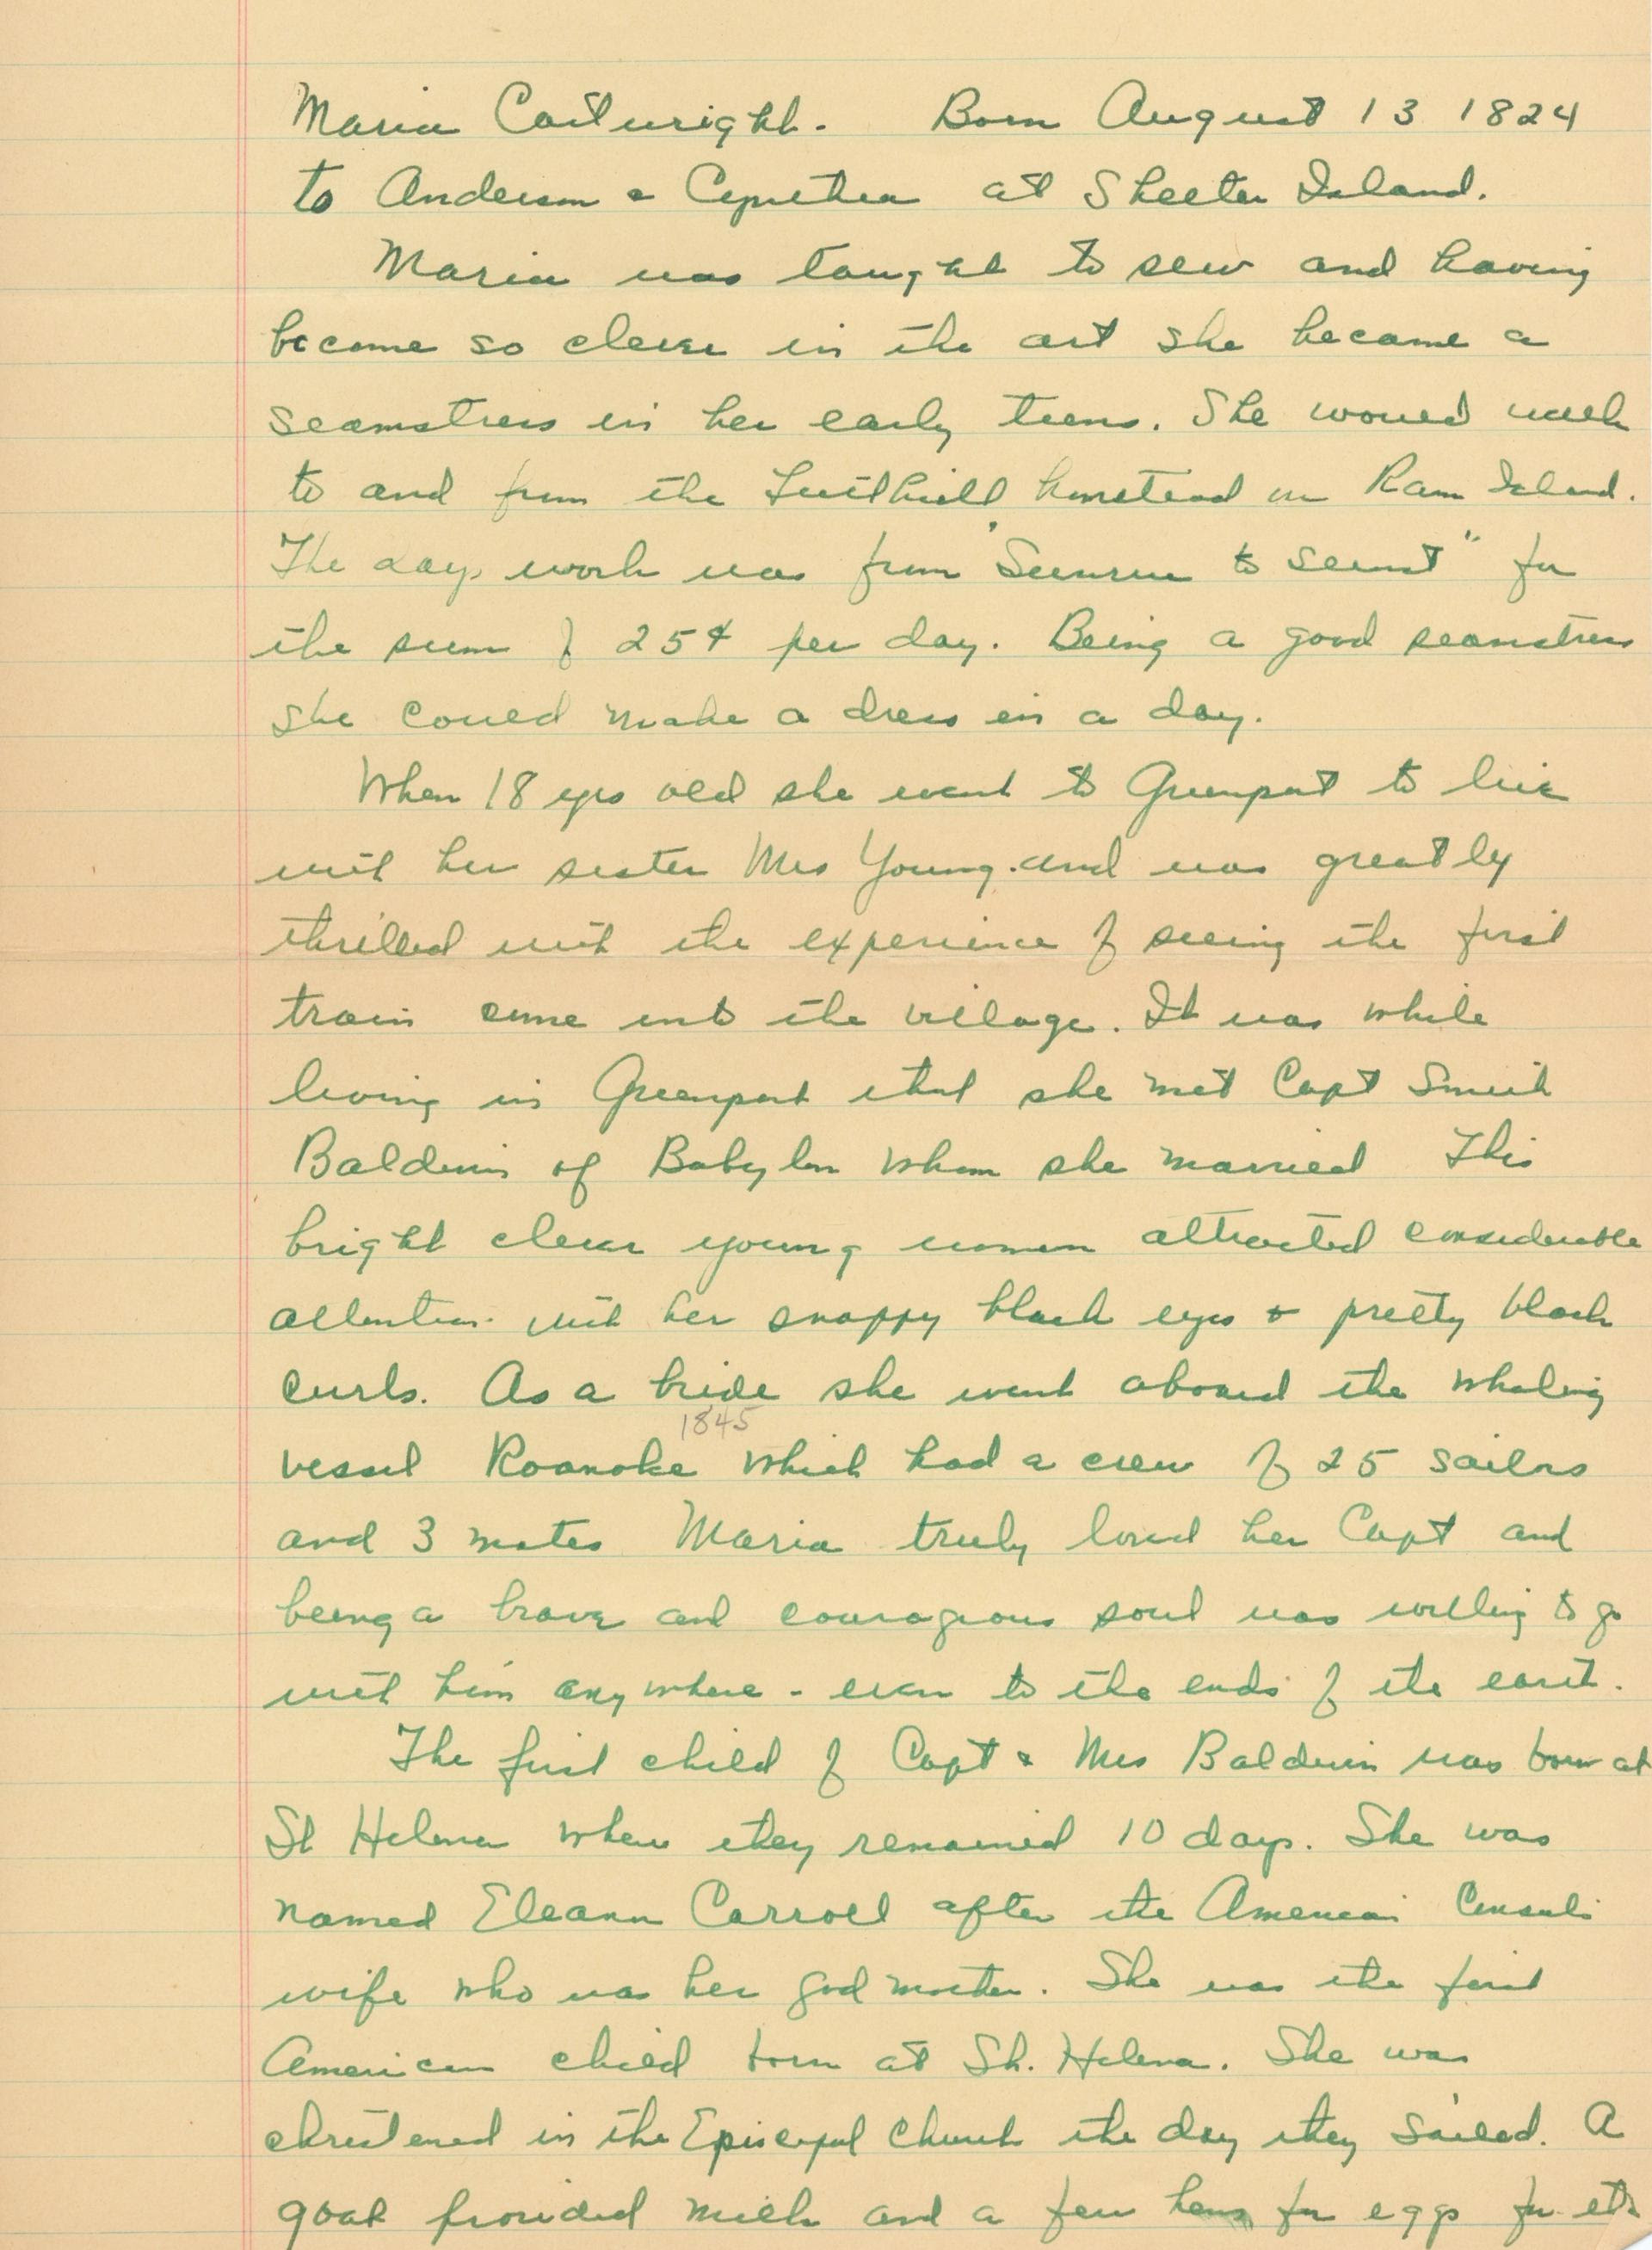 Maria Cartwright. Born August 13 1824
to Anderson & Cynthia at Shelter Island.
Maria was taught to sew and having
become so clever in the art she became a
seamstress in her early teens. She would walk
to and from the Tuthill homestead on Ram Island.
The days work was from "Sunrise to sunset" for
the sum of 25¢ per day. Being a good seamstress
she could make a dress in a day.
When 18 yrs old she went to Greenport to live
with her sister Mrs Young. and was greatly
thrilled with the experience of seeing the first
train come into the village. It was while
living in Greenport that she met Capt Smith
Baldwin of Babylon whom she married This
bright clever young women attracted considerable
attention with her snappy black eyes & pretty black
curls. As a bride she went aboard the whaling
1845
vessel Roanoke which had a crew of 25 sailors
and 3 mates Maria truly loved her Capt and
being a brave and couragious soul was willing to go
with him anywhere - even to the ends of the earth.
The first child of Capt & Mrs Baldwin was born at
St Helena when they remained 10 days. She was
named Eleann Carroll after the American Consuls
wife who was her god mother. She was the first
American child born at St. Helena. She was
christened in the Episcopal Church the day they sailed. A
goat provided milk and a few hens for eggs for